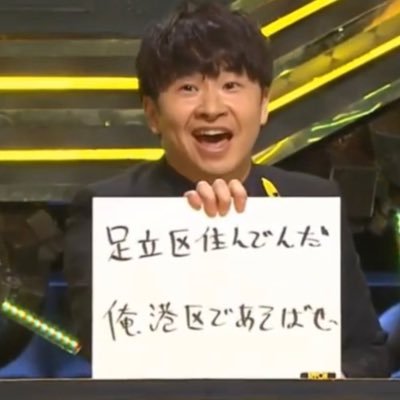 足立区住んでんだ
俺、港区であそばせ